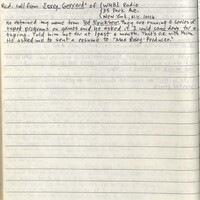 Red. call from Jerry Gerrard of { WNBI Radio
35 Park Ave.
New York, N.Y. 10016
He obtained my name from Ed They are running a series of
taped programs on and he asked if I would come down for a
taping. Told him not for at least a month. That's O.K. with him.
He asked me to sent a resume to "Max Producer."